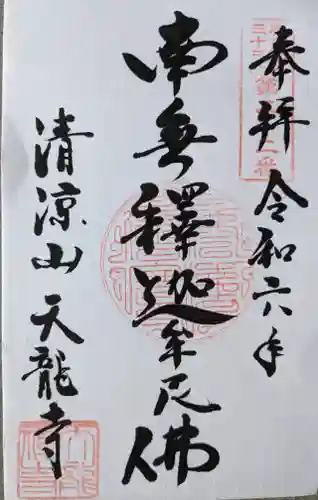 奉拝 令和六年
南無釋迦牟尼佛
清涼山 天龍寺